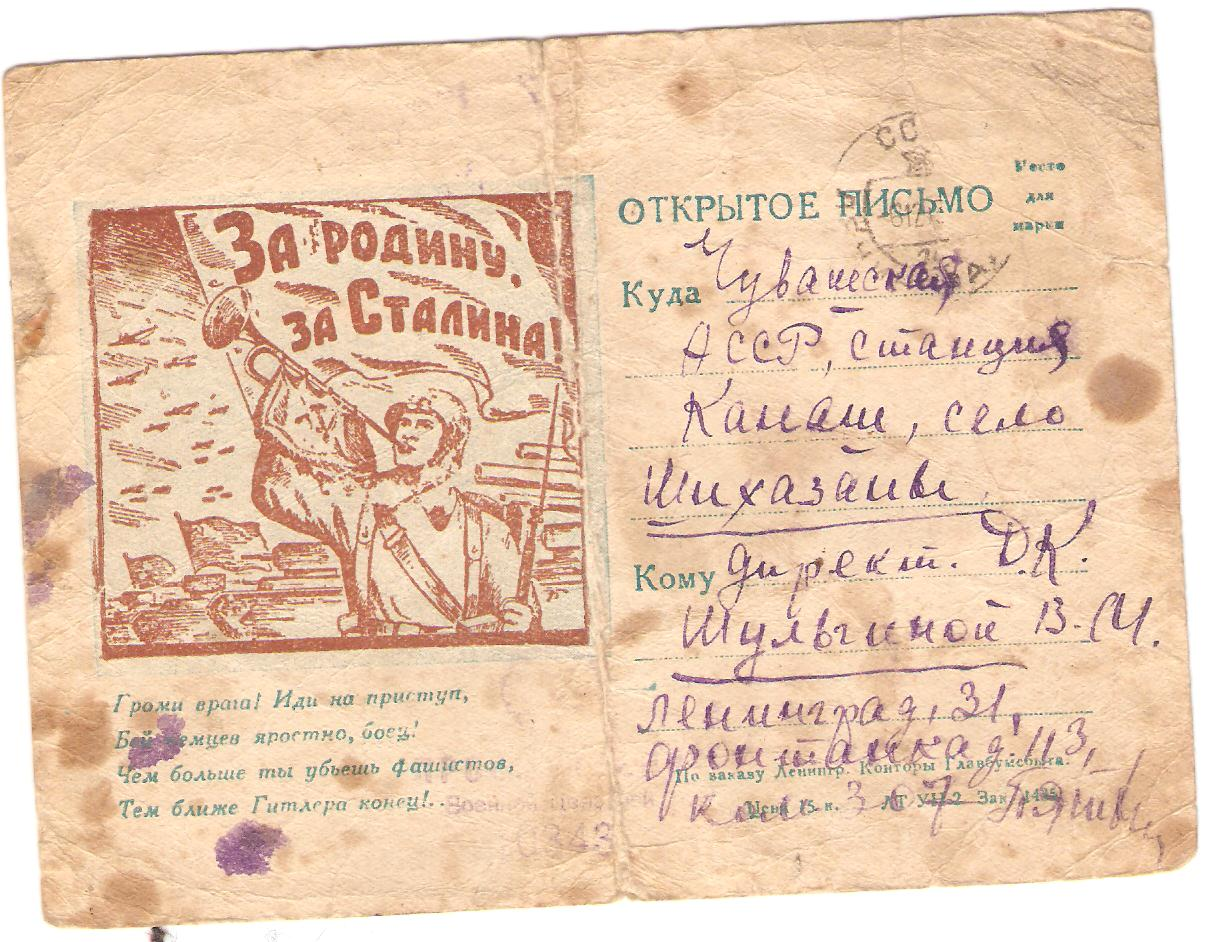 За родину,
за Сталина!
Громи врага! Иди на приступ,
Бей немцев яростно, боец!
Чем больше ты убьешь фашистов,
Тем ближе Гитлера конец!..
Военной Цензурой
СС
ОТКРЫТОЕ ПИСЬМО
Место
для
марки
Куда Чувашская
АССР, станция
Канаш, село
Шихазаны
Кому директ. Д.К.
Шульгиной В.М.
Ленинград, 31,
Фонтанка д. 113,
По заказу Ленингр. Конторы Главбумсбыта.
ком 307
Цена 15 к. ЛТ УН-2 Зак. 1495